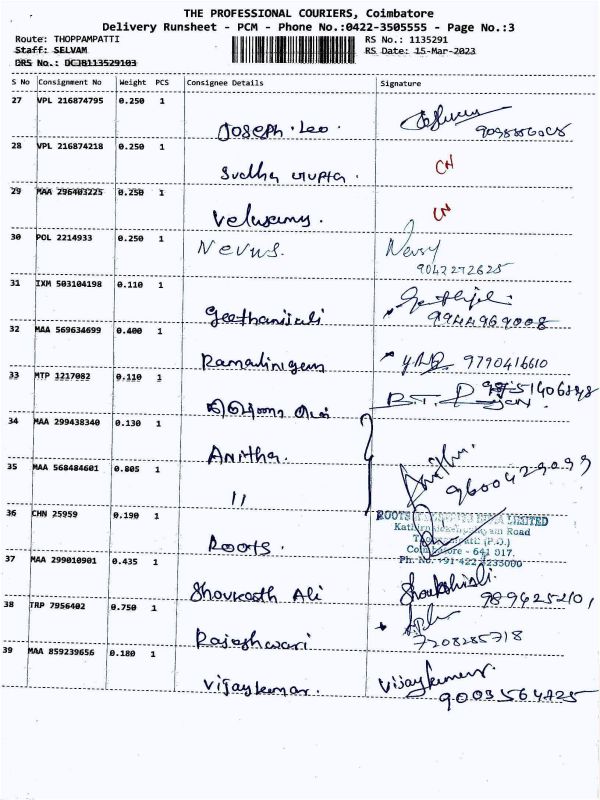 THE PROFESSIONAL COURIERS, Coimbatore
Delivery Runsheet - PCM - Phone No.:0422-3505555 - Page No.:3
Route: THOPPAMPATTI RS No.: 1135291
Staff: SELVAM RS Date: 15-Mar-2023
DRS No.: DCJB113529103
S No Consignment No Weight PCS Consignee Details Signature
27 VPL 216874795 0.250 1
Joseph. Leo.
28 VPL 216874218 0.250 1
Sudha Gupta. CN
29 MAA 296403225 0.250 1
Veluсamy. CN
30 POL 2214933 0.250 1 Nevus.
9042272625
31 IXM 503104198 0.110 1
Geethanjali 9944969008
32 MAA 569634699 0.400 1
Ramalingam 9790416610
33 MTP 1217082 0.110 1
34 MAA 299438340 0.130 1
Anitha.
35 MAA 568484601 0.805 1
11 9600429099
36 CHN 25959 0.190 1
Roots. INDIA LIMITED
Road
(P.O.)
Coimbatore - 641 017.
Ph. No. +91 422
37 MAA 299010901 0.435 1
Shoukath Ali
38 TRP 7956402 0.750 1
Rajeshwari 7208285718
39 MAA 859239656 0.180 1
Vijaykumar. Vijaykumar.